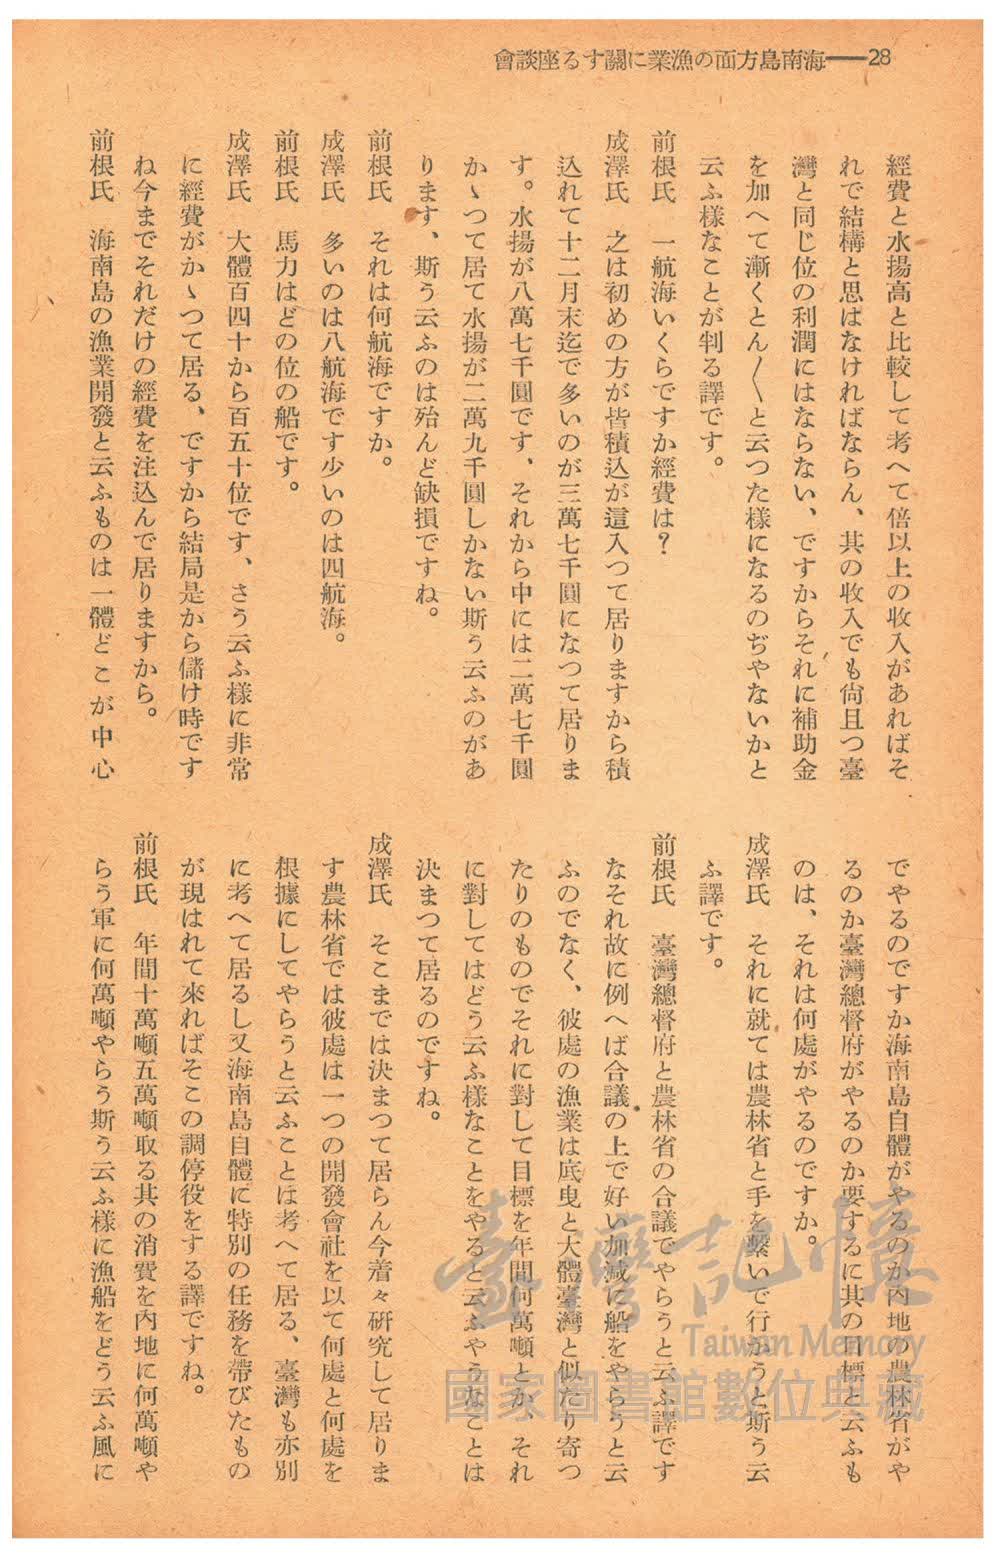 海南島方面の漁業に關する座談會──28
經費と水揚高と比較して考へて倍以上の收入があればそ
れで結構と思はなければならん、其の收入でも尙且つ臺
灣と同じ位の利潤にはならない、ですからそれに補助金
を加へて漸くとん〳〵と云つた樣になるのぢやないかと
云ふ樣なことが判る譯です。
前根氏　一航海いくらですか經費は？
成澤氏　之は初めの方が皆積込が這入つて居りますから積
込れて十二月末迄で多いのが三萬七千圓になつて居りま
す。水揚が八萬七千圓です、それから中には二萬七千圓
かゝつて居て水揚が二萬九千圓しかない斯う云ふのがあ
ります、斯う云ふのは殆んど缺損ですね。
前根氏　それは何航海ですか。
成澤氏　多いのは八航海です少いのは四航海。
前根氏　馬力はどの位の船です。
成澤氏　大體百四十から百五十位です、さう云ふ樣に非常
に經費がかゝつて居る、ですから結局是から儲け時です
ね今までそれだけの經費を注込んで居りますから。
前根氏　海南島の漁業開發と云ふものは一體どこが中心
でやるのですか海南島自體がやるのか內地の農林省がや
るのか臺灣總督府がやるのか要するに其の目標と云ふも
のは、それは何處がやるのですか。
成澤氏　それに就ては農林省と手を繫いで行かうと斯う云
ふ譯です。
前根氏　臺灣總督府と農林省の合議でやらうと云ふ譯です
なそれ故に例へば合議の上で好い加減に船をやらうと云
ふのでなく、彼處の漁業は底曳と大體臺灣と似たり寄つ
たりのものでそれに對して目標を年間何萬噸とか、それ
に對してはどう云ふ樣なことをやると云ふやうなことは
決まつて居るのですね。
成澤氏　そこまでは決まつて居らん今着々硏究して居りま
す農林省では彼處は一つの開發會社を以て何處と何處を
根據にしてやらうと云ふことは考へて居る、臺灣も亦別
に考へて居るし又海南島自體に特別の任務を帶びたもの
が現はれて來ればそこの調停役をする譯ですね。
前根氏　年間十萬噸五萬噸取る其の消費を內地に何萬噸や
らう軍に何萬噸やらう斯う云ふ樣に漁船をどう云ふ風に
臺灣記憶
Taiwan Memory
國家圖書館數位典藏